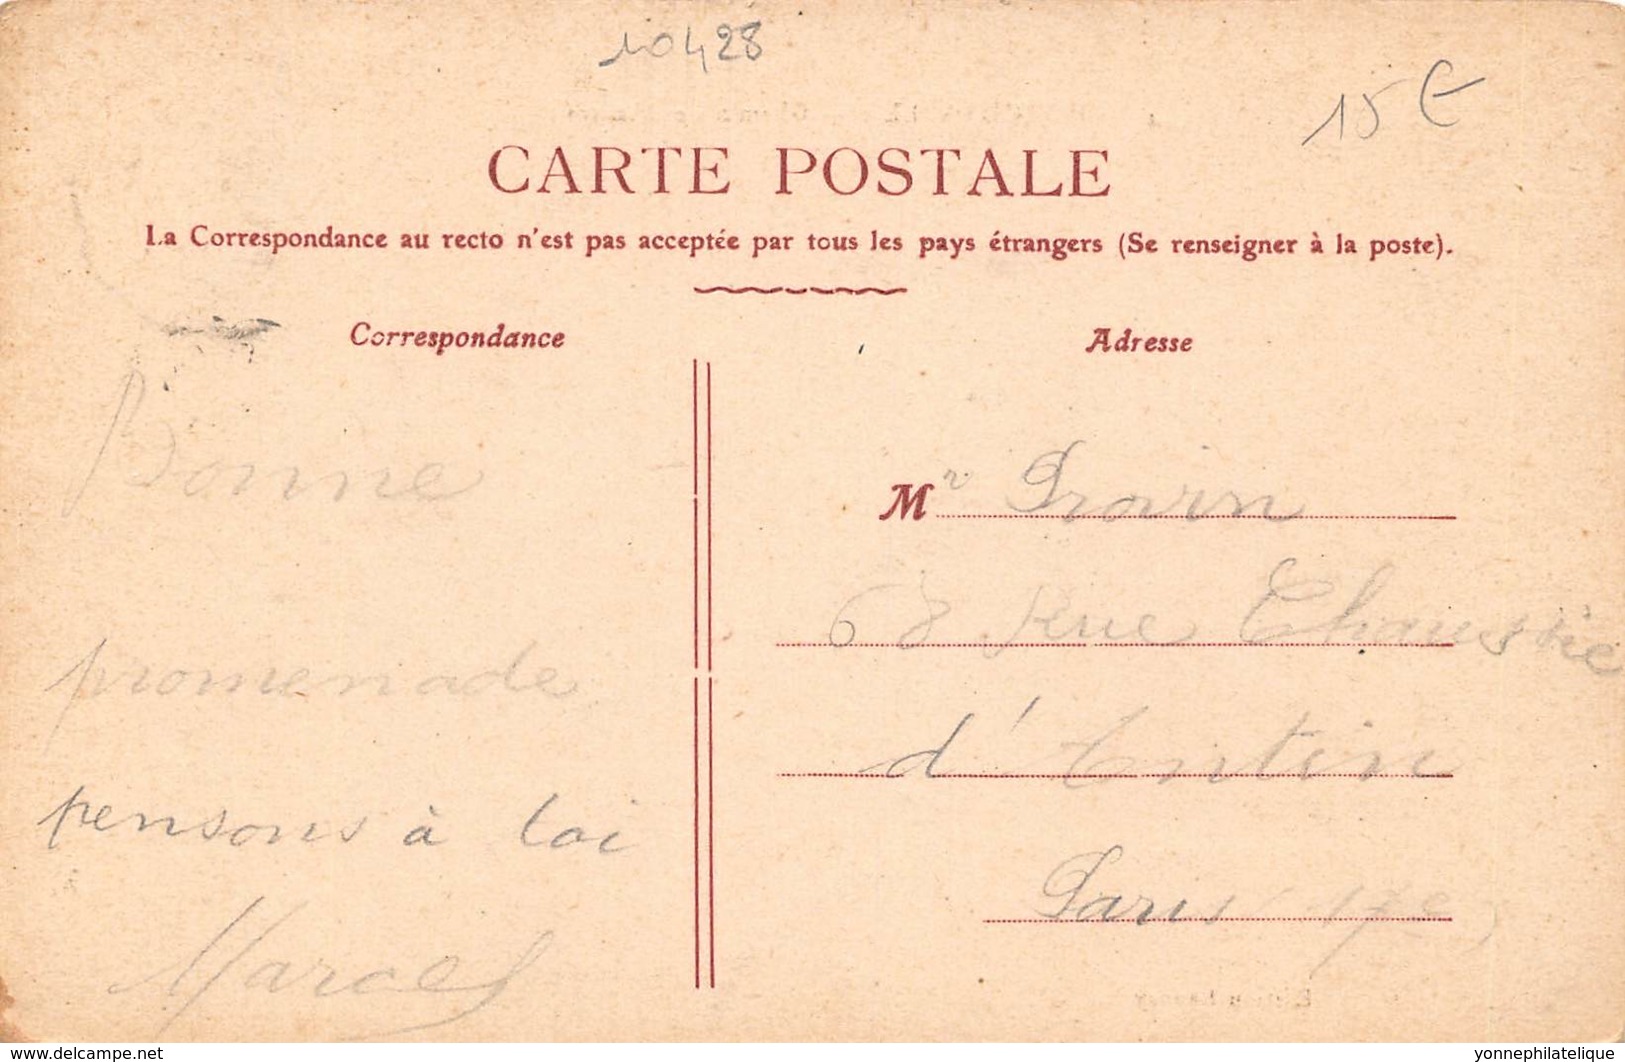 10428
15 €
CARTE POSTALE
La Correspondance au recto n'est pas acceptée par tous les pays étrangers (Se renseigner à la poste).
Correspondance
Bonne
promenade
pensons à toi
Marcel
Adresse
Mr Provin
68 Rue Chaussée
d'Antin
Paris
www.delcampe.net
yonnephilatelique